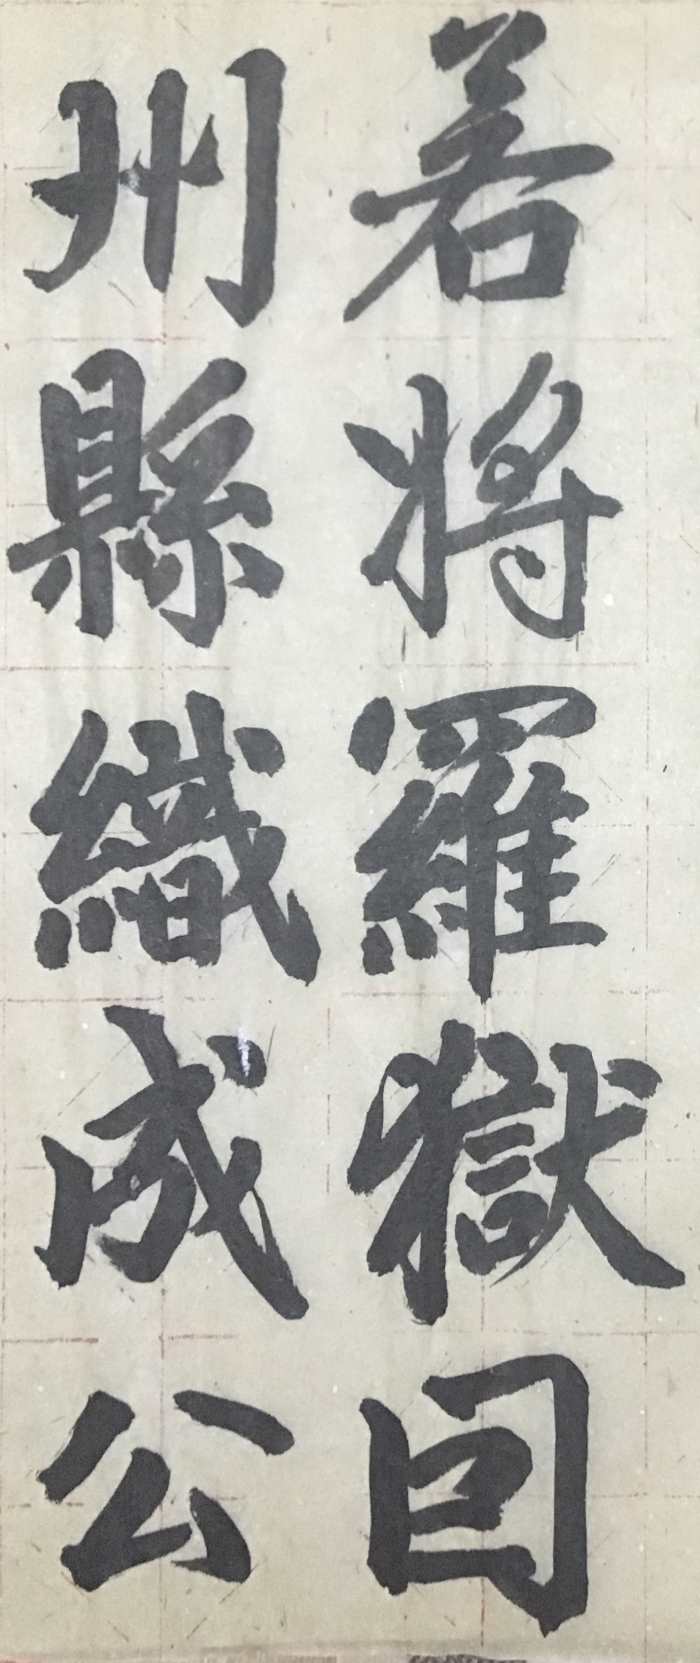 若將羅獄囘
州縣織成公